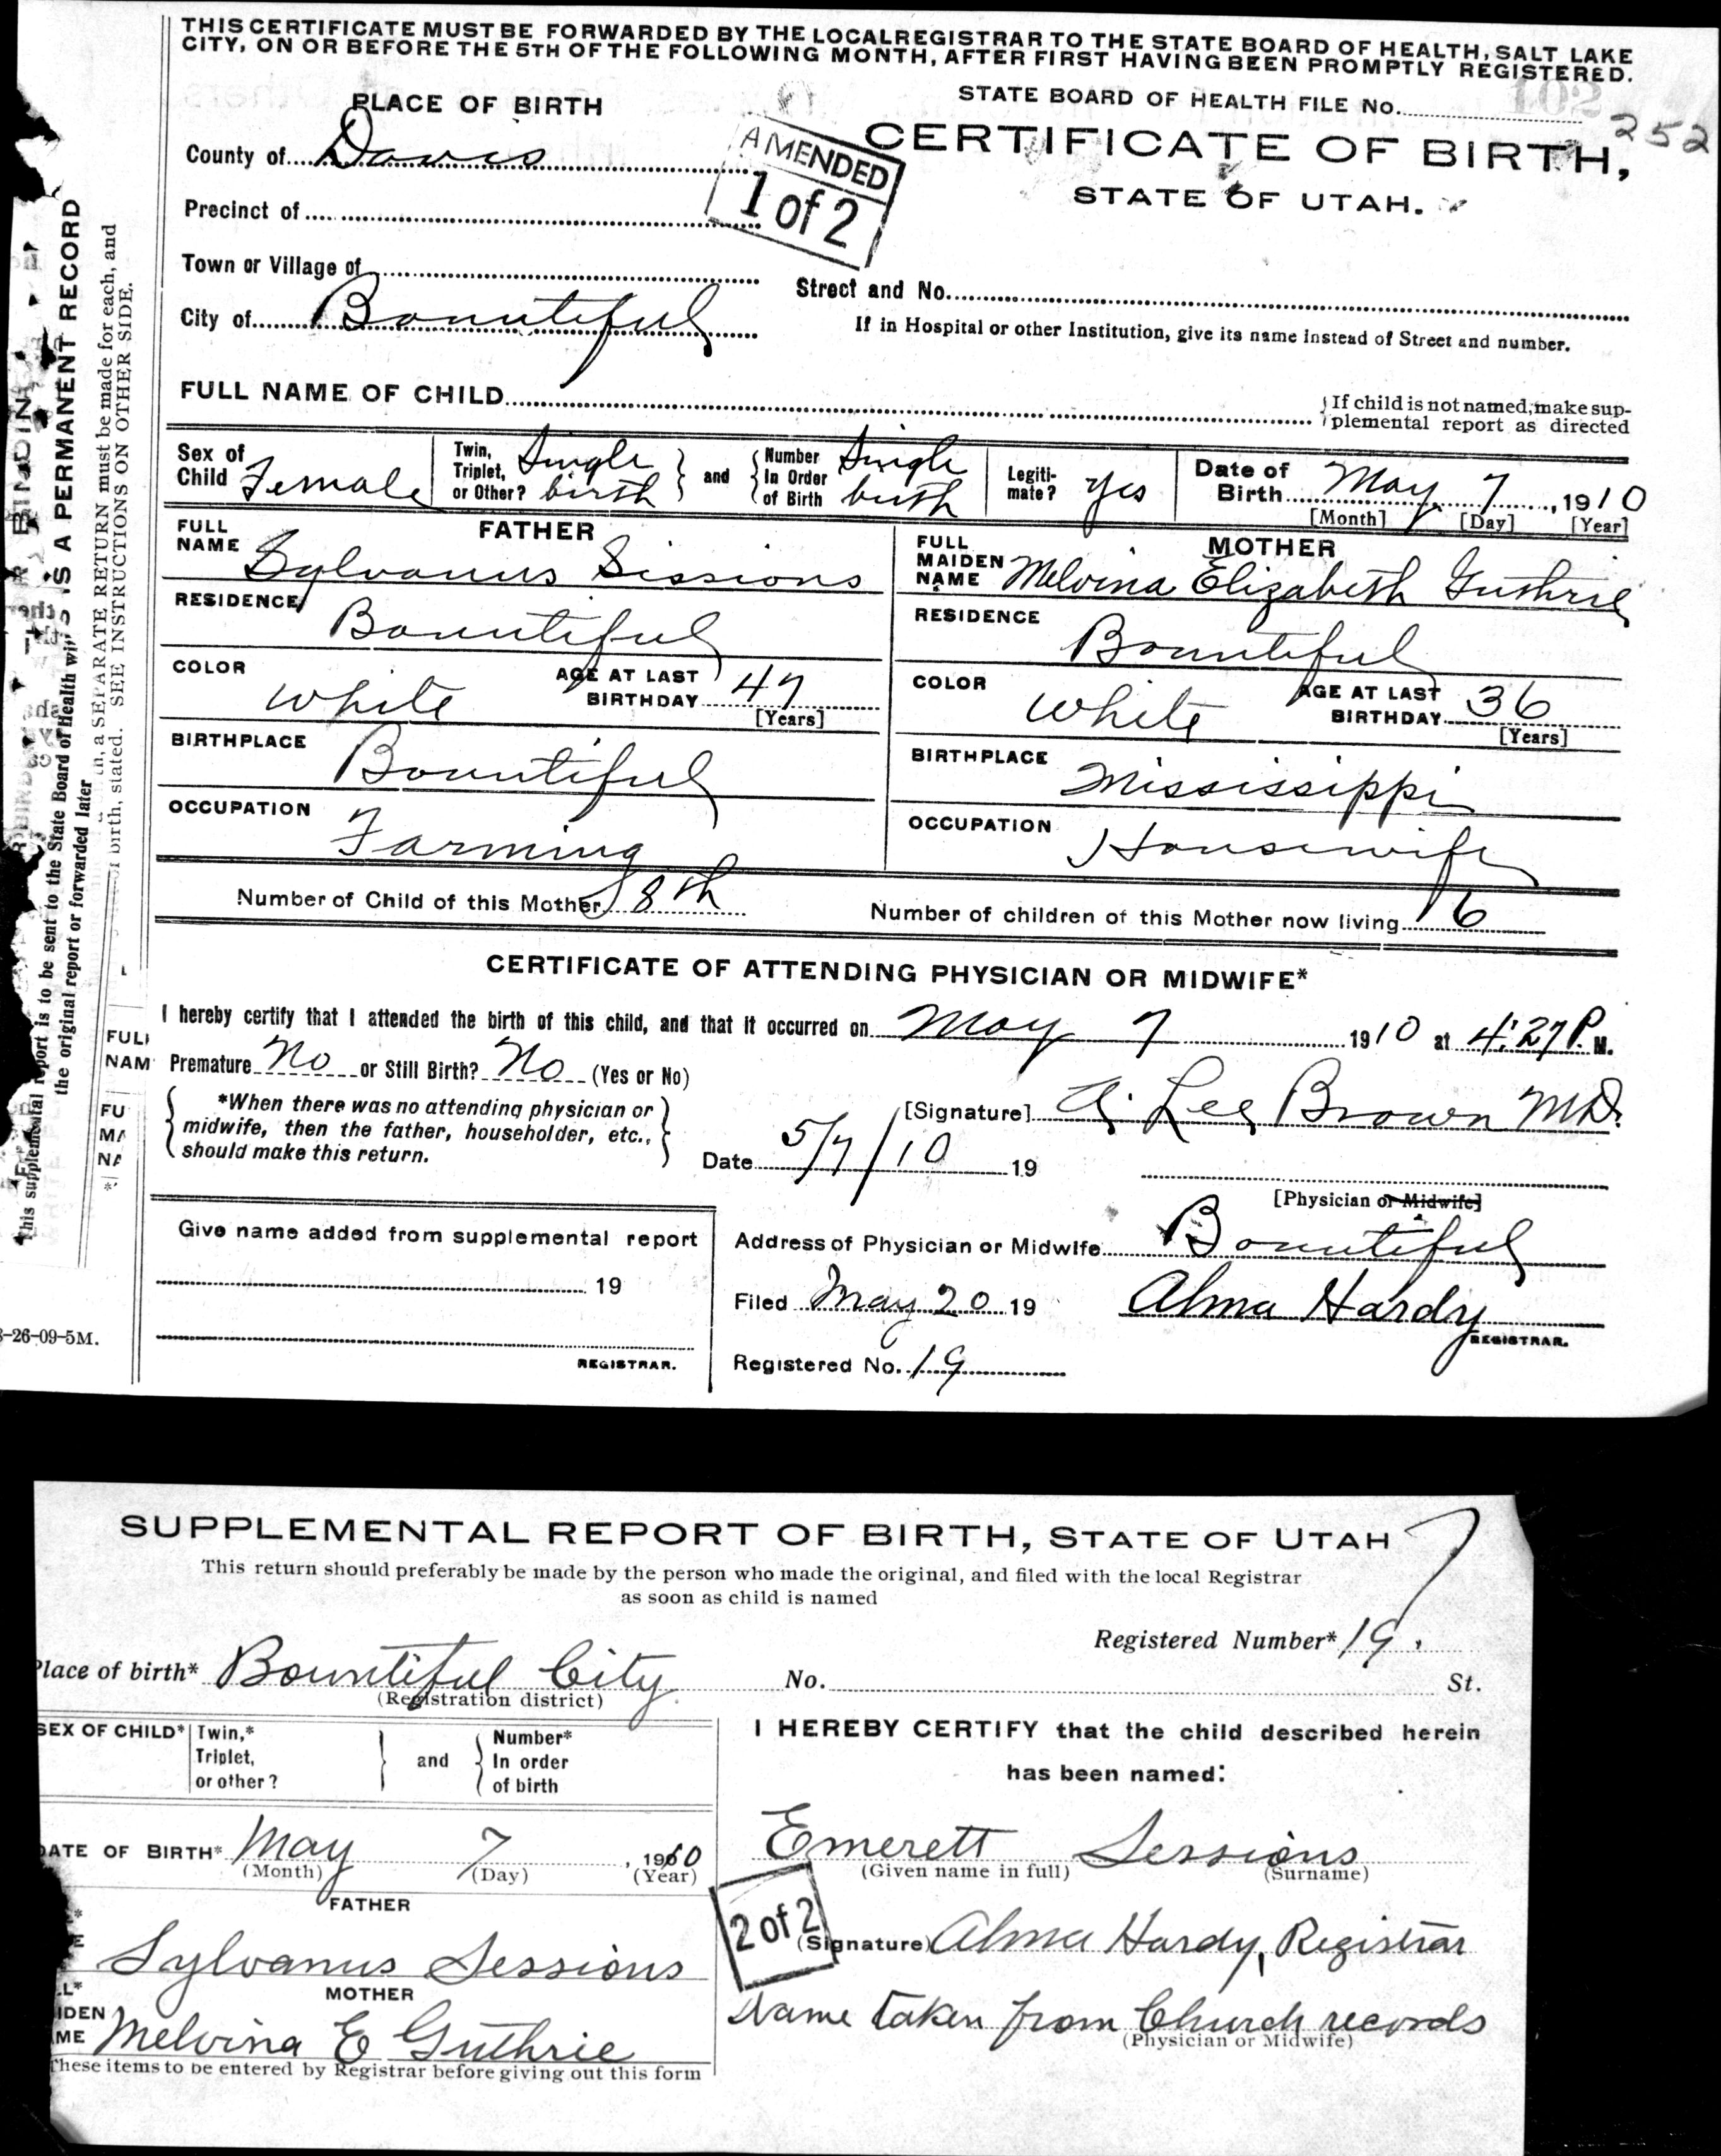 THIS CERTIFICATE MUST BE FORWARDED BY THE LOCAL REGISTRAR TO THE STATE BOARD OF HEALTH, SALT LAKE
CITY, ON OR BEFORE THE 5TH OF THE FOLLOWING MONTH, AFTER FIRST HAVING BEEN PROMPTLY REGISTERED.
PLACE OF BIRTH
STATE BOARD OF HEALTH FILE No. 102
252
County of Davis
AMENDED
1 of 2
CERTIFICATE OF BIRTH,
STATE OF UTAH.
Precinct of
Town or Village of
Street and No.
City of Bountiful
If in Hospital or other Institution, give its name instead of Street and number.
FULL NAME OF CHILD
If child is not named, make sup-
plemental report as directed
Sex of Child Female
Twin, Triplet, or Other? Single birth
and
Number In Order of Birth Single birth
Legiti-mate? Yes
Date of Birth May 7, 1910
[Month] [Day] [Year]
FATHER
FULL NAME Sylvanus Sissions
RESIDENCE Bountiful
COLOR White
AGE AT LAST BIRTHDAY 47
[Years]
BIRTHPLACE Bountiful
OCCUPATION Farming
MOTHER
FULL MAIDEN NAME Melvina Elizabeth Guthrie
RESIDENCE Bountiful
COLOR White
AGE AT LAST BIRTHDAY 36
[Years]
BIRTHPLACE Mississippi
OCCUPATION Housewife
Number of Child of this Mother 8th
Number of children of this Mother now living 6
CERTIFICATE OF ATTENDING PHYSICIAN OR MIDWIFE*
I hereby certify that I attended the birth of this child, and that it occurred on May 7 1910 at 4:27 P. M.
Premature No or Still Birth? No (Yes or No)
*When there was no attending physician or
midwife, then the father, householder, etc.,
should make this return.
[Signature] A. Lee Brown MD.
Date 5/7/10 19
[Physician or Midwife]
Give name added from supplemental report
19
REGISTRAR.
Address of Physician or Midwife Bountiful
Filed May 20 19
Alma Hardy
REGISTRAR.
Registered No. 19
-26-09-5M.
IS A PERMANENT RECORD
a SEPARATE RETURN must be made for each, and
of birth, stated. SEE INSTRUCTIONS ON OTHER SIDE.
This supplemental report is to be sent to the State Board of Health
the original report or forwarded later
FULL
NAM
FU
MA
NA
SUPPLEMENTAL REPORT OF BIRTH, STATE OF UTAH
7
This return should preferably be made by the person who made the original, and filed with the local Registrar
as soon as child is named
Registered Number* 19.
Place of birth* Bountiful City
(Registration district)
No. St.
SEX OF CHILD*
Twin,* Triplet, or other?
and
Number* In order of birth
DATE OF BIRTH* May 7, 1910
(Month) (Day) (Year)
FATHER
Sylvanus Sessions
MOTHER
IDEN
ME Melvina E Guthrie
These items to be entered by Registrar before giving out this form
I HEREBY CERTIFY that the child described herein
has been named:
Emerett Sessions
(Given name in full) (Surname)
2 of 2
(Signature) Alma Hardy, Registrar
Name taken from Church records
(Physician or Midwife)